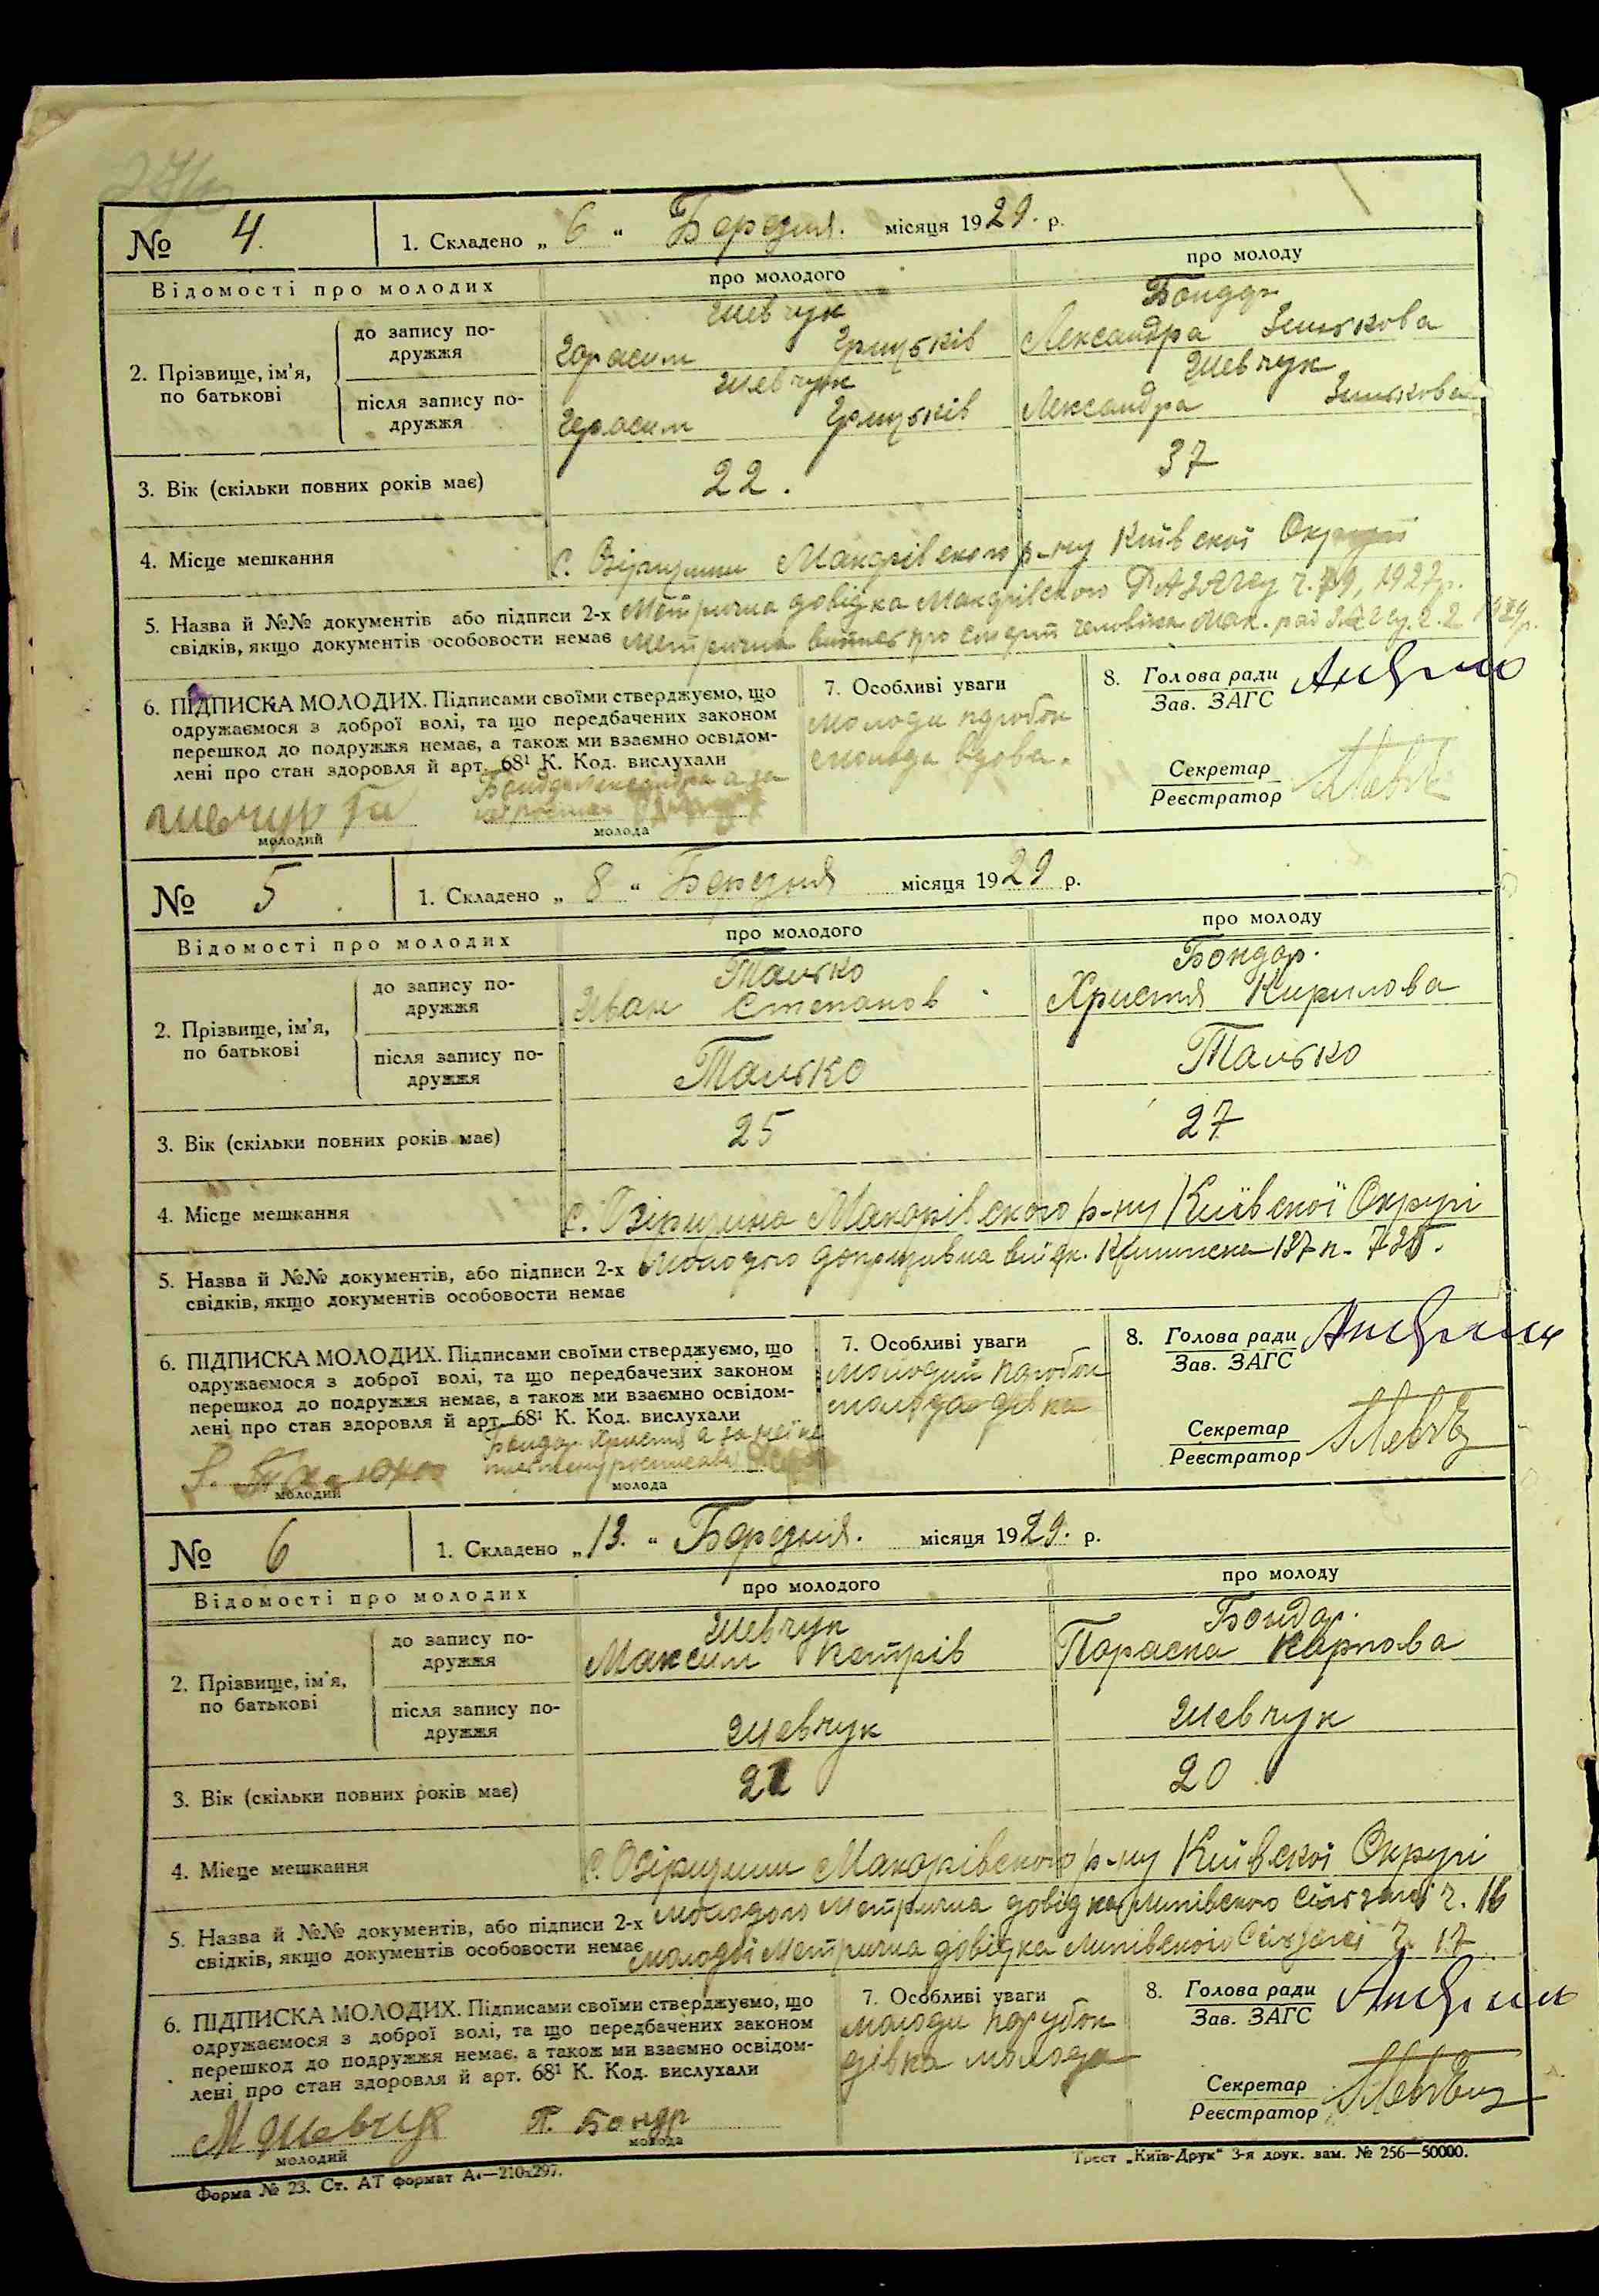 № 4.
1. Складено „ 6 “ Березня. місяця 1929. р.
Відомості про молодих
про молодого
про молоду
2. Прізвище, ім’я, по батькові
до запису подружжя
Шевчук
Герасим
Бондар
Лександра Зінькова
після запису подружжя
Шевчук
Герасим
Шевчук
Лександра Зінькова
3. Вік (скільки повних років має)
22.
37
4. Місце мешкання
с. Макарівского р-ну Київскої Округи
5. Назва й №№ документів або підписи 2-х
свідків, якщо документів особовости немає
Метрична довідка Макарівского 1927р.
Метрична про смерть человіка Мак. рай ЗАГСу ч. 2 1929р.
6. ПІДПИСКА МОЛОДИХ. Підписами своїми стверджуємо, що
одружаємося з доброї волі, та що передбачених законом
перешкод до подружжя немає, а також ми взаємно освідом-
лені про стан здоровля й арт. 68¹ К. Код. вислухали
Шевчук Га
молодий
Бондар Лександра а за
молода
7. Особливі уваги
молоди парубок
молода вдова.
8. Голова ради
Зав. ЗАГС
Секретар
Реєстратор
№ 5
1. Складено „ 8 “ Березня місяця 1929 р.
Відомості про молодих
про молодого
про молоду
2. Прізвище, ім’я, по батькові
до запису подружжя
Талько
Иван Степанов
Бондар.
Христя Кирилова
після запису подружжя
Талько
Талько
3. Вік (скільки повних років має)
25
27
4. Місце мешкання
с. Макарівского р-ну Київскої Округі
5. Назва й №№ документів, або підписи 2-х
свідків, якщо документів особовости немає
молодого
6. ПІДПИСКА МОЛОДИХ. Підписами своїми стверджуємо, що
одружаємося з доброї волі, та що передбачених законом
перешкод до подружжя немає, а також ми взаємно освідом-
лені про стан здоровля й арт. 68¹ К. Код. вислухали
молодий
Бондар Христя а за неї не
молода
7. Особливі уваги
молодий парубок
молода дівка
8. Голова ради
Зав. ЗАГС
Секретар
Реєстратор
№ 6
1. Складено „ 13. “ Березня. місяця 1929. р.
Відомості про молодих
про молодого
про молоду
2. Прізвище, ім’я, по батькові
до запису подружжя
Шевчук
Максим Петрів
Бондар.
Параска Карпова
після запису подружжя
Шевчук
Шевчук
3. Вік (скільки повних років має)
20
4. Місце мешкання
с. Макарівского р-ну Київскої Округі
5. Назва й №№ документів, або підписи 2-х
свідків, якщо документів особовости немає
молодого Метрична довідка Липівского ч. 16
молодої Метрична довідка Липівского ч. 17
6. ПІДПИСКА МОЛОДИХ. Підписами своїми стверджуємо, що
одружаємося з доброї волі, та що передбачених законом
перешкод до подружжя немає. а також ми взаємно освідом-
лені про стан здоровля й арт. 68¹ К. Код. вислухали
М Шевчук
молодий
П. Бондр
молода
7. Особливі уваги
молоди парубок
дівка молода
8. Голова ради
Зав. ЗАГС
Секретар
Реєстратор
Форма № 23. Ст. АТ формат А₄—210x297.
Трест „Київ-Друк“ 3-я друк. зам. № 256—50000.